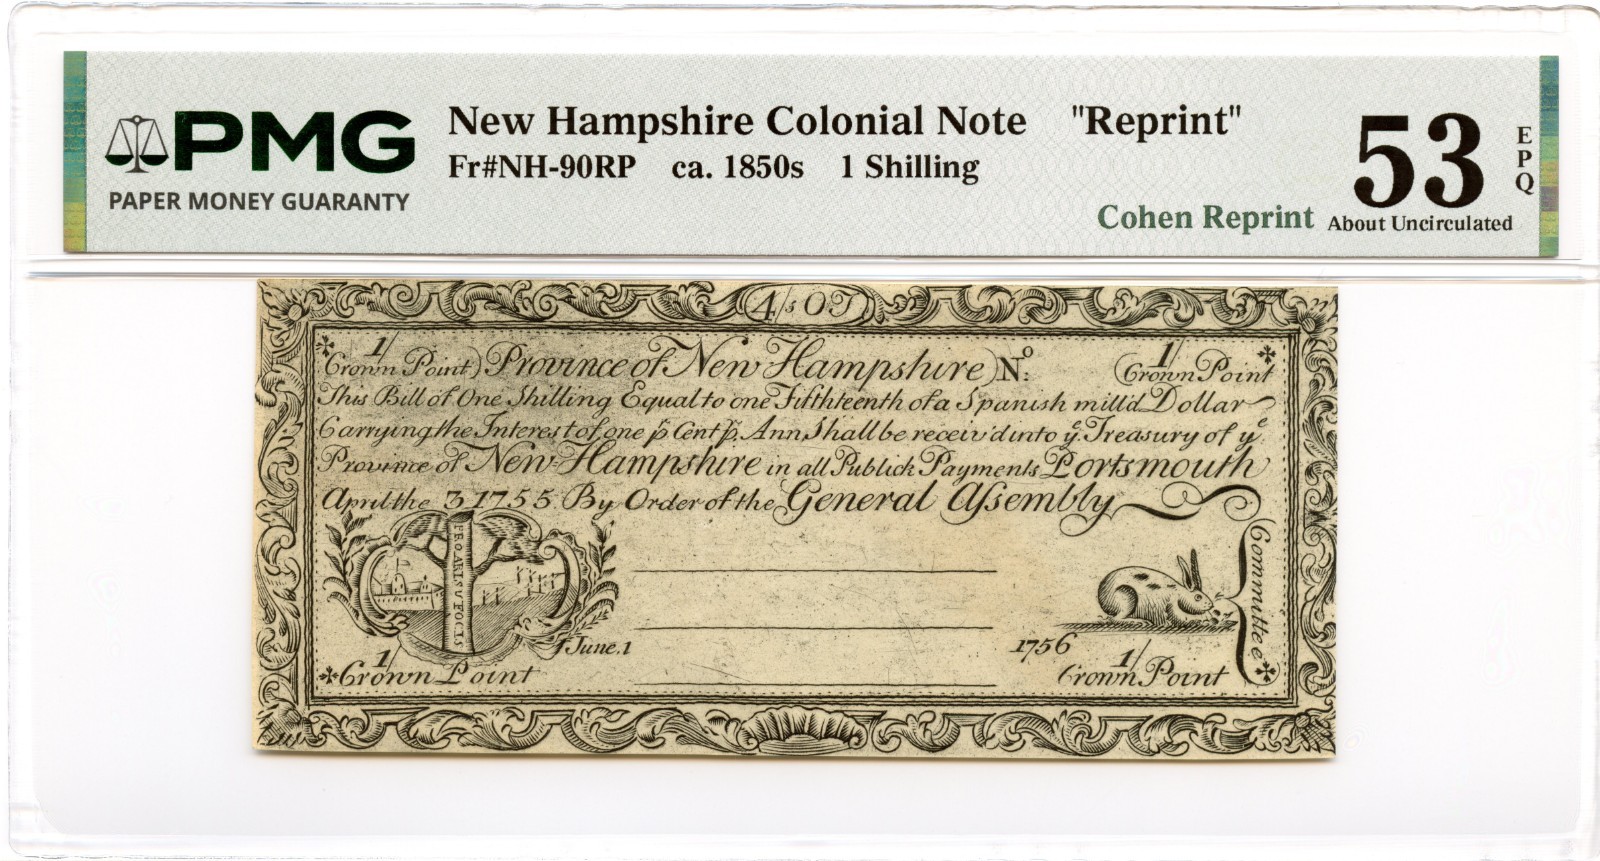 PMG
PAPER MONEY GUARANTY
New Hampshire Colonial Note "Reprint"
Fr#NH-90RP ca. 1850s 1 Shilling
Cohen Reprint
53
EPQ
About Uncirculated
4/s OT
1/ 1/
Crown Point) Province of New Hampshire) No. (Crown Point
This Bill of One Shilling Equal to one Fifthteenth of a Spanish mill'd Dollar
Carrying the Interest of one p Cent p. Ann. Shall be receiv'd into ye. Treasury of ye
Province of New-Hampshire in all Publick Payments Portsmouth
April the 3 1755 By Order of the General Assembly
PRO ARIS U FOCIS
Committee
June.1 1756
1/ 1/
Crown Point Crown Point